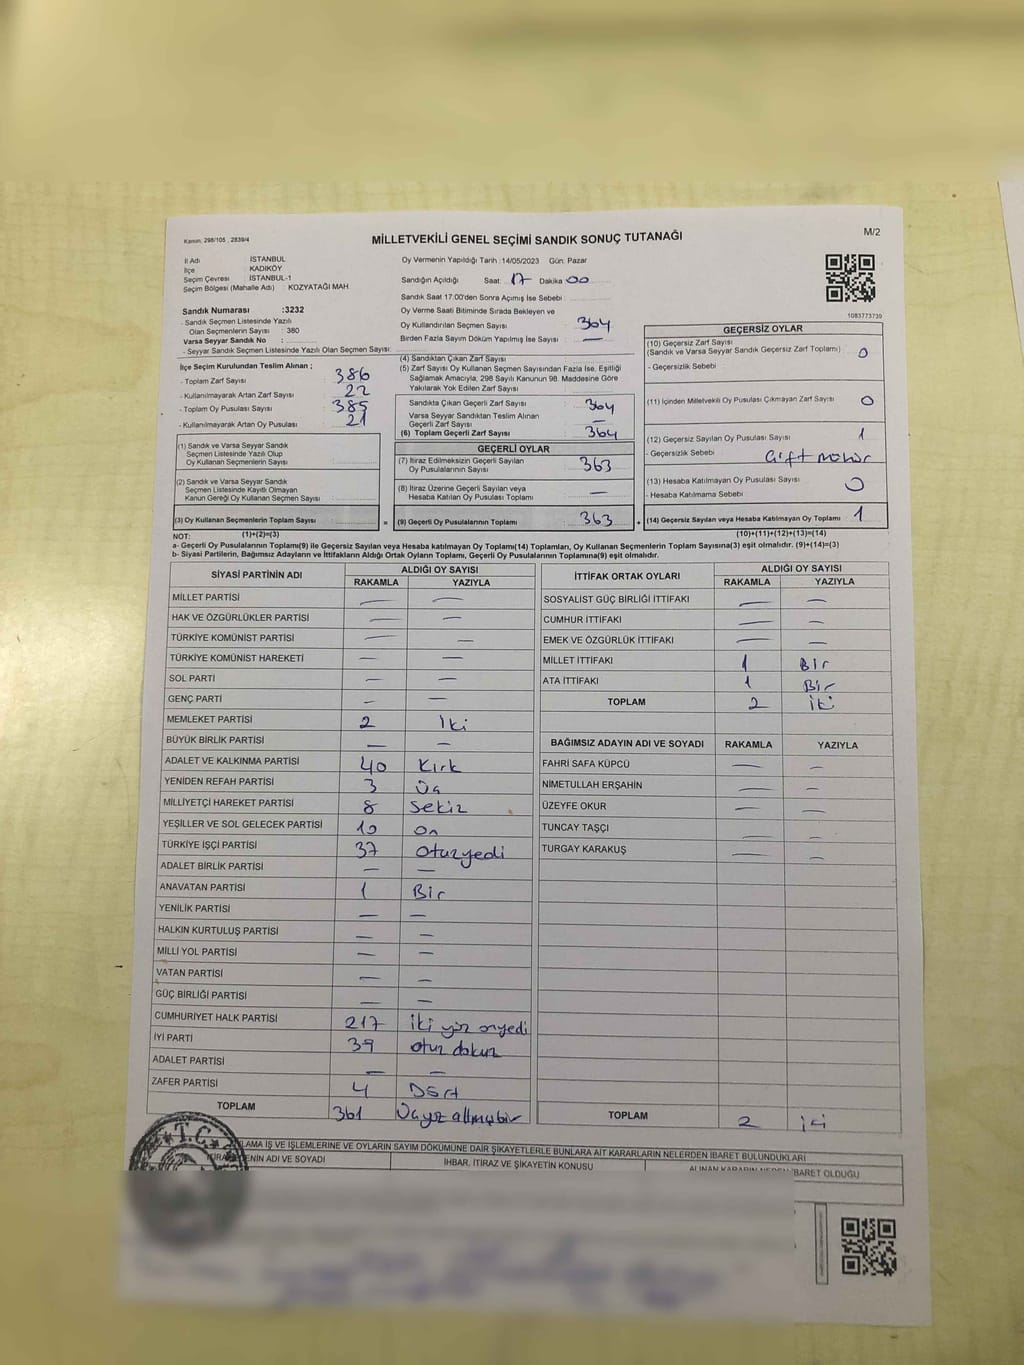 Kanun. 298/105 , 2839/4
MİLLETVEKİLİ GENEL SEÇİMİ SANDIK SONUÇ TUTANAĞI
M/2
İl Adı İSTANBUL
İlçe KADIKÖY
Seçim Çevresi İSTANBUL-1
Seçim Bölgesi (Mahalle Adı) : KOZYATAĞI MAH.
Sandık Numarası :3232
- Sandık Seçmen Listesinde Yazılı
Olan Seçmenlerin Sayısı : 380
Varsa Seyyar Sandık No :
- Seyyar Sandık Seçmen Listesinde Yazılı Olan Seçmen Sayısı:
İlçe Seçim Kurulundan Teslim Alınan ;
- Toplam Zarf Sayısı : 386
- Kullanılmayarak Artan Zarf Sayısı : 22
- Toplam Oy Pusulası Sayısı : 385
- Kullanılmayarak Artan Oy Pusulası : 21
(1) Sandık ve Varsa Seyyar Sandık
Seçmen Listesinde Yazılı Olup
Oy Kullanan Seçmenlerin Sayısı :
(2) Sandık ve Varsa Seyyar Sandık
Seçmen Listesinde Kayıtlı Olmayan
Kanun Gereği Oy Kullanan Seçmen Sayısı :
(3) Oy Kullanan Seçmenlerin Toplam Sayısı
Oy Vermenin Yapıldığı Tarih :14/05/2023 Gün: Pazar
Sandığın Açıldığı Saat: 17 Dakika 00
Sandık Saat 17.00'den Sonra Açılmış İse Sebebi :
Oy Verme Saati Bitiminde Sırada Bekleyen ve
Oy Kullandırılan Seçmen Sayısı : 364
Birden Fazla Sayım Döküm Yapılmış İse Sayısı : —
(4) Sandıktan Çıkan Zarf Sayısı :
(5) Zarf Sayısı Oy Kullanan Seçmen Sayısından Fazla İse, Eşitliği
Sağlamak Amacıyla, 298 Sayılı Kanunun 98. Maddesine Göre
Yakılarak Yok Edilen Zarf Sayısı :
Sandıkta Çıkan Geçerli Zarf Sayısı : 364
Varsa Seyyar Sandıktan Teslim Alınan
Geçerli Zarf Sayısı : —
(6) Toplam Geçerli Zarf Sayısı : 364
GEÇERLİ OYLAR
(7) İtiraz Edilmeksizin Geçerli Sayılan
Oy Pusulalarının Sayısı : 363
(8) İtiraz Üzerine Geçerli Sayılan veya
Hesaba Katılan Oy Pusulası Toplamı : —
= (9) Geçerli Oy Pusulalarının Toplamı : 363
1083773739
GEÇERSİZ OYLAR
(10) Geçersiz Zarf Sayısı
(Sandık ve Varsa Seyyar Sandık Geçersiz Zarf Toplamı) : 0
- Geçersizlik Sebebi :
(11) İçinden Milletvekili Oy Pusulası Çıkmayan Zarf Sayısı : 0
(12) Geçersiz Sayılan Oy Pusulası Sayısı : 1
- Geçersizlik Sebebi : Çift mühür
(13) Hesaba Katılmayan Oy Pusulası Sayısı : 0
- Hesaba Katılmama Sebebi :
+ (14) Geçersiz Sayılan veya Hesaba Katılmayan Oy Toplamı : 1
NOT: (1)+(2)=(3) (10)+(11)+(12)+(13)=(14)
a- Geçerli Oy Pusulalarının Toplamı(9) ile Geçersiz Sayılan veya Hesaba katılmayan Oy Toplamı(14) Toplamları, Oy Kullanan Seçmenlerin Toplam Sayısına(3) eşit olmalıdır. (9)+(14)=(3)
b- Siyasi Partilerin, Bağımsız Adayların ve İttifakların Aldığı Ortak Oyların Toplamı, Geçerli Oy Pusulalarının Toplamına(9) eşit olmalıdır.
SİYASİ PARTİNİN ADI ALDIĞI OY SAYISI
RAKAMLA YAZIYLA
MİLLET PARTİSİ — —
HAK VE ÖZGÜRLÜKLER PARTİSİ — —
TÜRKİYE KOMÜNİST PARTİSİ — —
TÜRKİYE KOMÜNİST HAREKETİ — —
SOL PARTİ — —
GENÇ PARTİ — —
MEMLEKET PARTİSİ 2 iki
BÜYÜK BİRLİK PARTİSİ — —
ADALET VE KALKINMA PARTİSİ 40 Kırk
YENİDEN REFAH PARTİSİ 3 Üç
MİLLİYETÇİ HAREKET PARTİSİ 8 Sekiz
YEŞİLLER VE SOL GELECEK PARTİSİ 10 On
TÜRKİYE İŞÇİ PARTİSİ 37 Otuzyedi
ADALET BİRLİK PARTİSİ — —
ANAVATAN PARTİSİ 1 Bir
YENİLİK PARTİSİ — —
HALKIN KURTULUŞ PARTİSİ — —
MİLLİ YOL PARTİSİ — —
VATAN PARTİSİ — —
GÜÇ BİRLİĞİ PARTİSİ — —
CUMHURİYET HALK PARTİSİ 217 iki yüz onyedi
İYİ PARTİ 39 otuz dokuz
ADALET PARTİSİ — —
ZAFER PARTİSİ 4 Dört
TOPLAM 361 Üçyüz altmışbir
İTTİFAK ORTAK OYLARI ALDIĞI OY SAYISI
RAKAMLA YAZIYLA
SOSYALİST GÜÇ BİRLİĞİ İTTİFAKI — —
CUMHUR İTTİFAKI — —
EMEK VE ÖZGÜRLÜK İTTİFAKI — —
MİLLET İTTİFAKI 1 Bir
ATA İTTİFAKI 1 Bir
TOPLAM 2 iki
BAĞIMSIZ ADAYIN ADI VE SOYADI RAKAMLA YAZIYLA
FAHRİ SAFA KÜPCÜ — —
NİMETULLAH ERŞAHİN — —
ÜZEYFE OKUR — —
TUNCAY TAŞÇI — —
TURGAY KARAKUŞ — —
TOPLAM 2 iki
T.C.
LAMA İŞ VE İŞLEMLERİNE VE OYLARIN SAYIM DÖKÜMÜNE DAİR ŞİKAYETLERLE BUNLARA AİT KARARLARIN NELERDEN İBARET BULUNDUKLARI
ADI VE SOYADI İHBAR, İTİRAZ VE ŞİKAYETİN KONUSU ALINAN KARARIN NEDEN İBARET OLDUĞU